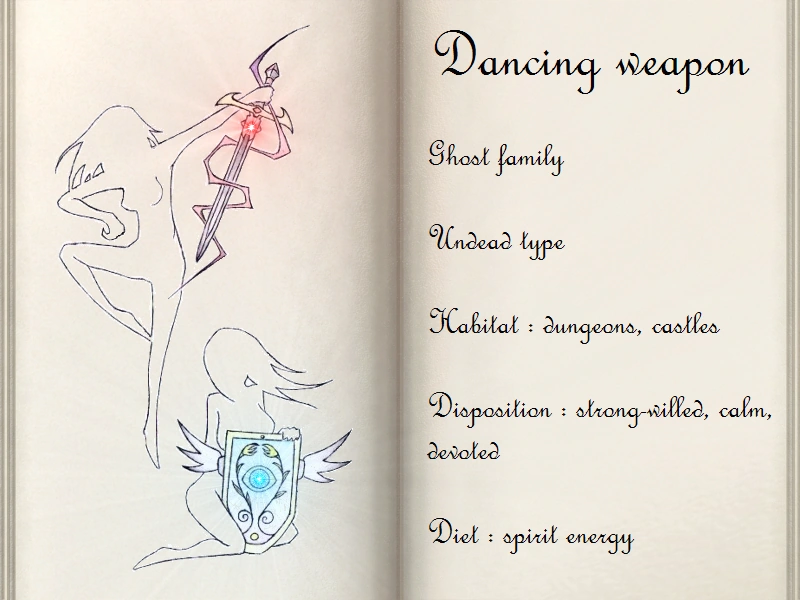 Dancing weapon
Ghost family
Undead type
Habitat : dungeons, castles
Disposition : strong-willed, calm,
devoted
Diet : spirit energy